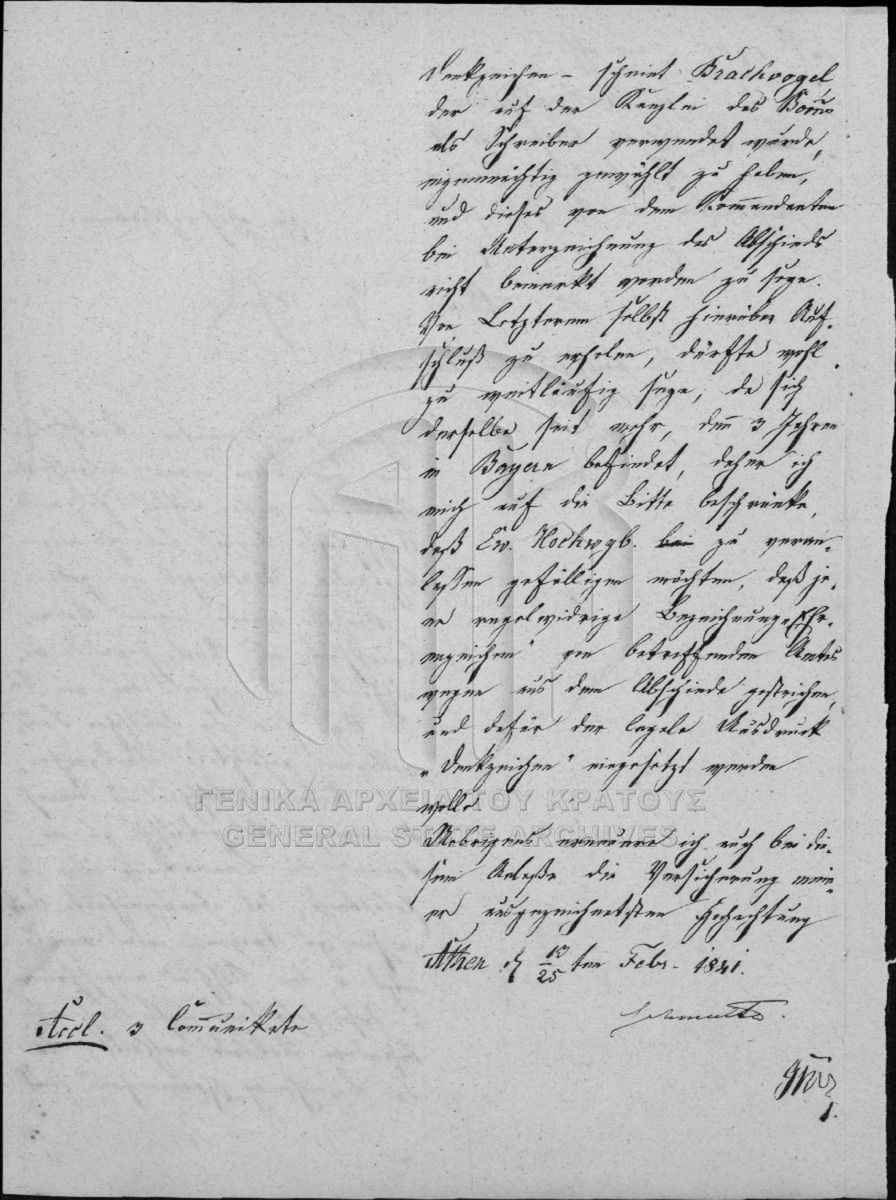 Denkzeichen – scheint Brachvogel
der auf der Kanzlei des
als Schreiber verwendet wurde,
eigenmächtig gewählt zu haben,
und dieses von dem Kommandanten
bei Unterzeichnung des Abschieds
nicht bemerkt worden zu seyn.
Von Letzterem selbst hierüber Auf-
schluß zu erholen, dürfte wohl
zu weitläufig seyn, da sich
derselbe seit mehr, denn 3 Jahren
in Bayern befindet, daher ich
mich auf die Bitte beschränke,
daß Ew. Hochwgb. bei zu veran-
lassen gefälligen möchten, daß je-
ne regelwidrige Bezeichnung „Ehr-
enzeichen" von betreffenden Amts
wegen aus dem Abschiede gestrichen,
und dafür der legale Ausdruck
„Denkzeichen" eingesetzt werden
wolle.
Uebrigens erneuere ich auch bei die-
sem Anlaße die Versicherung mein-
er ausgezeichnetsten Hochachtung
Athen d 13/25 ten Febr. 1841.
Accl. 3 Communikate
ΓΕΝΙΚΑ ΑΡΧΕΙΑ ΤΟΥ ΚΡΑΤΟΥΣ
GENERAL STATE ARCHIVES